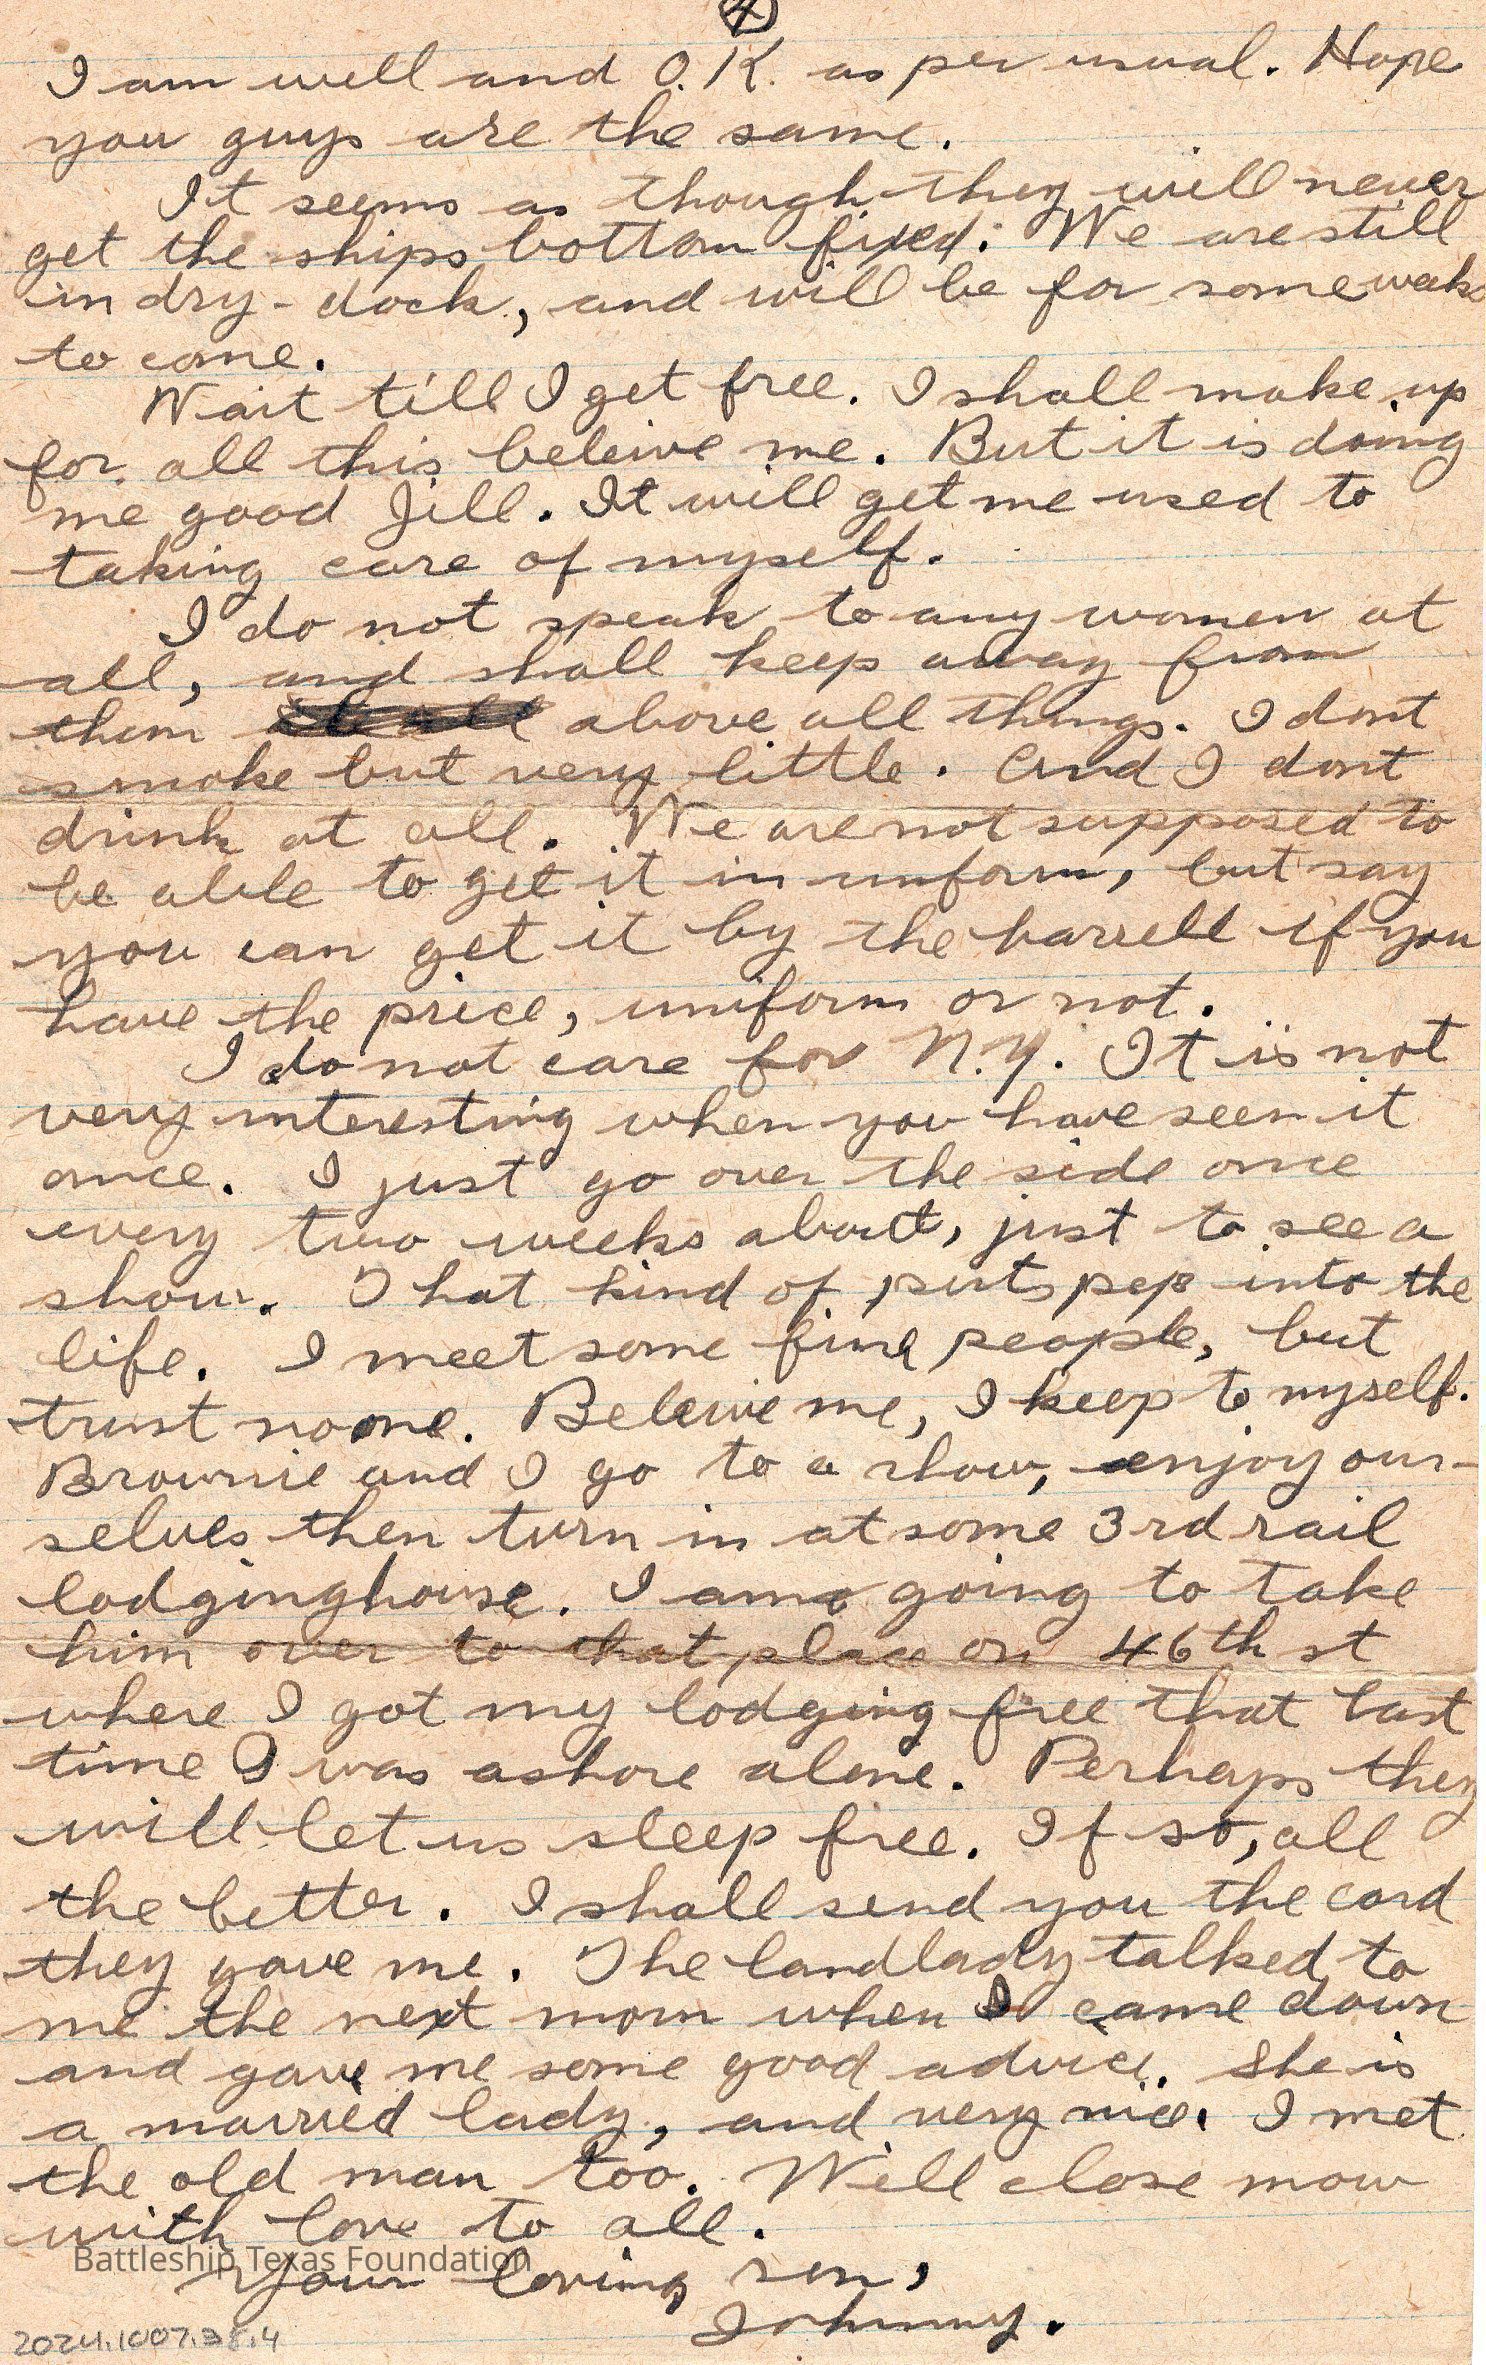 4
I am well and O.K. as per usual. Hope
you guys are the same.
It seems as though they will never
get the ships bottom fixed. We are still
in dry-dock, and will be for some weeks
to come.
Wait till I get free. I shall make up
for all this beleive me. But it is doing
me good Jill. It will get me used to
taking care of myself.
I do not speak to any women at
all, and shall keep away from
them above all things. I dont
smoke but very little. And I dont
drink at all. We are not supposed to
be able to get it in uniform, but say
you can get it by the barrell if you
have the price, uniform or not.
I do not care for N.Y. It is not
very interesting when you have seen it
once. I just go over the side once
every two weeks about, just to see a
show. That kind of puts pep into the
life. I meet some fine people, but
trust no one. Beleive me, I keep to myself.
Brownie and I go to a show, enjoy our-
selves then turn in at some 3rd rail
lodginghouse. I am going to take
him over to that place on 46th st
where I got my lodging free that last
time I was ashore alone. Perhaps they
will let us sleep free. If so, all
the better. I shall send you the card
they gave me. The landlady talked to
me the next morn when I came down
and gave me some good advice. She is
a married lady, and very nice. I met
the old man too. Well close now
with love to all.
Battleship Texas Foundation
Your loving son,
Johnny.
2024.1007.38.4